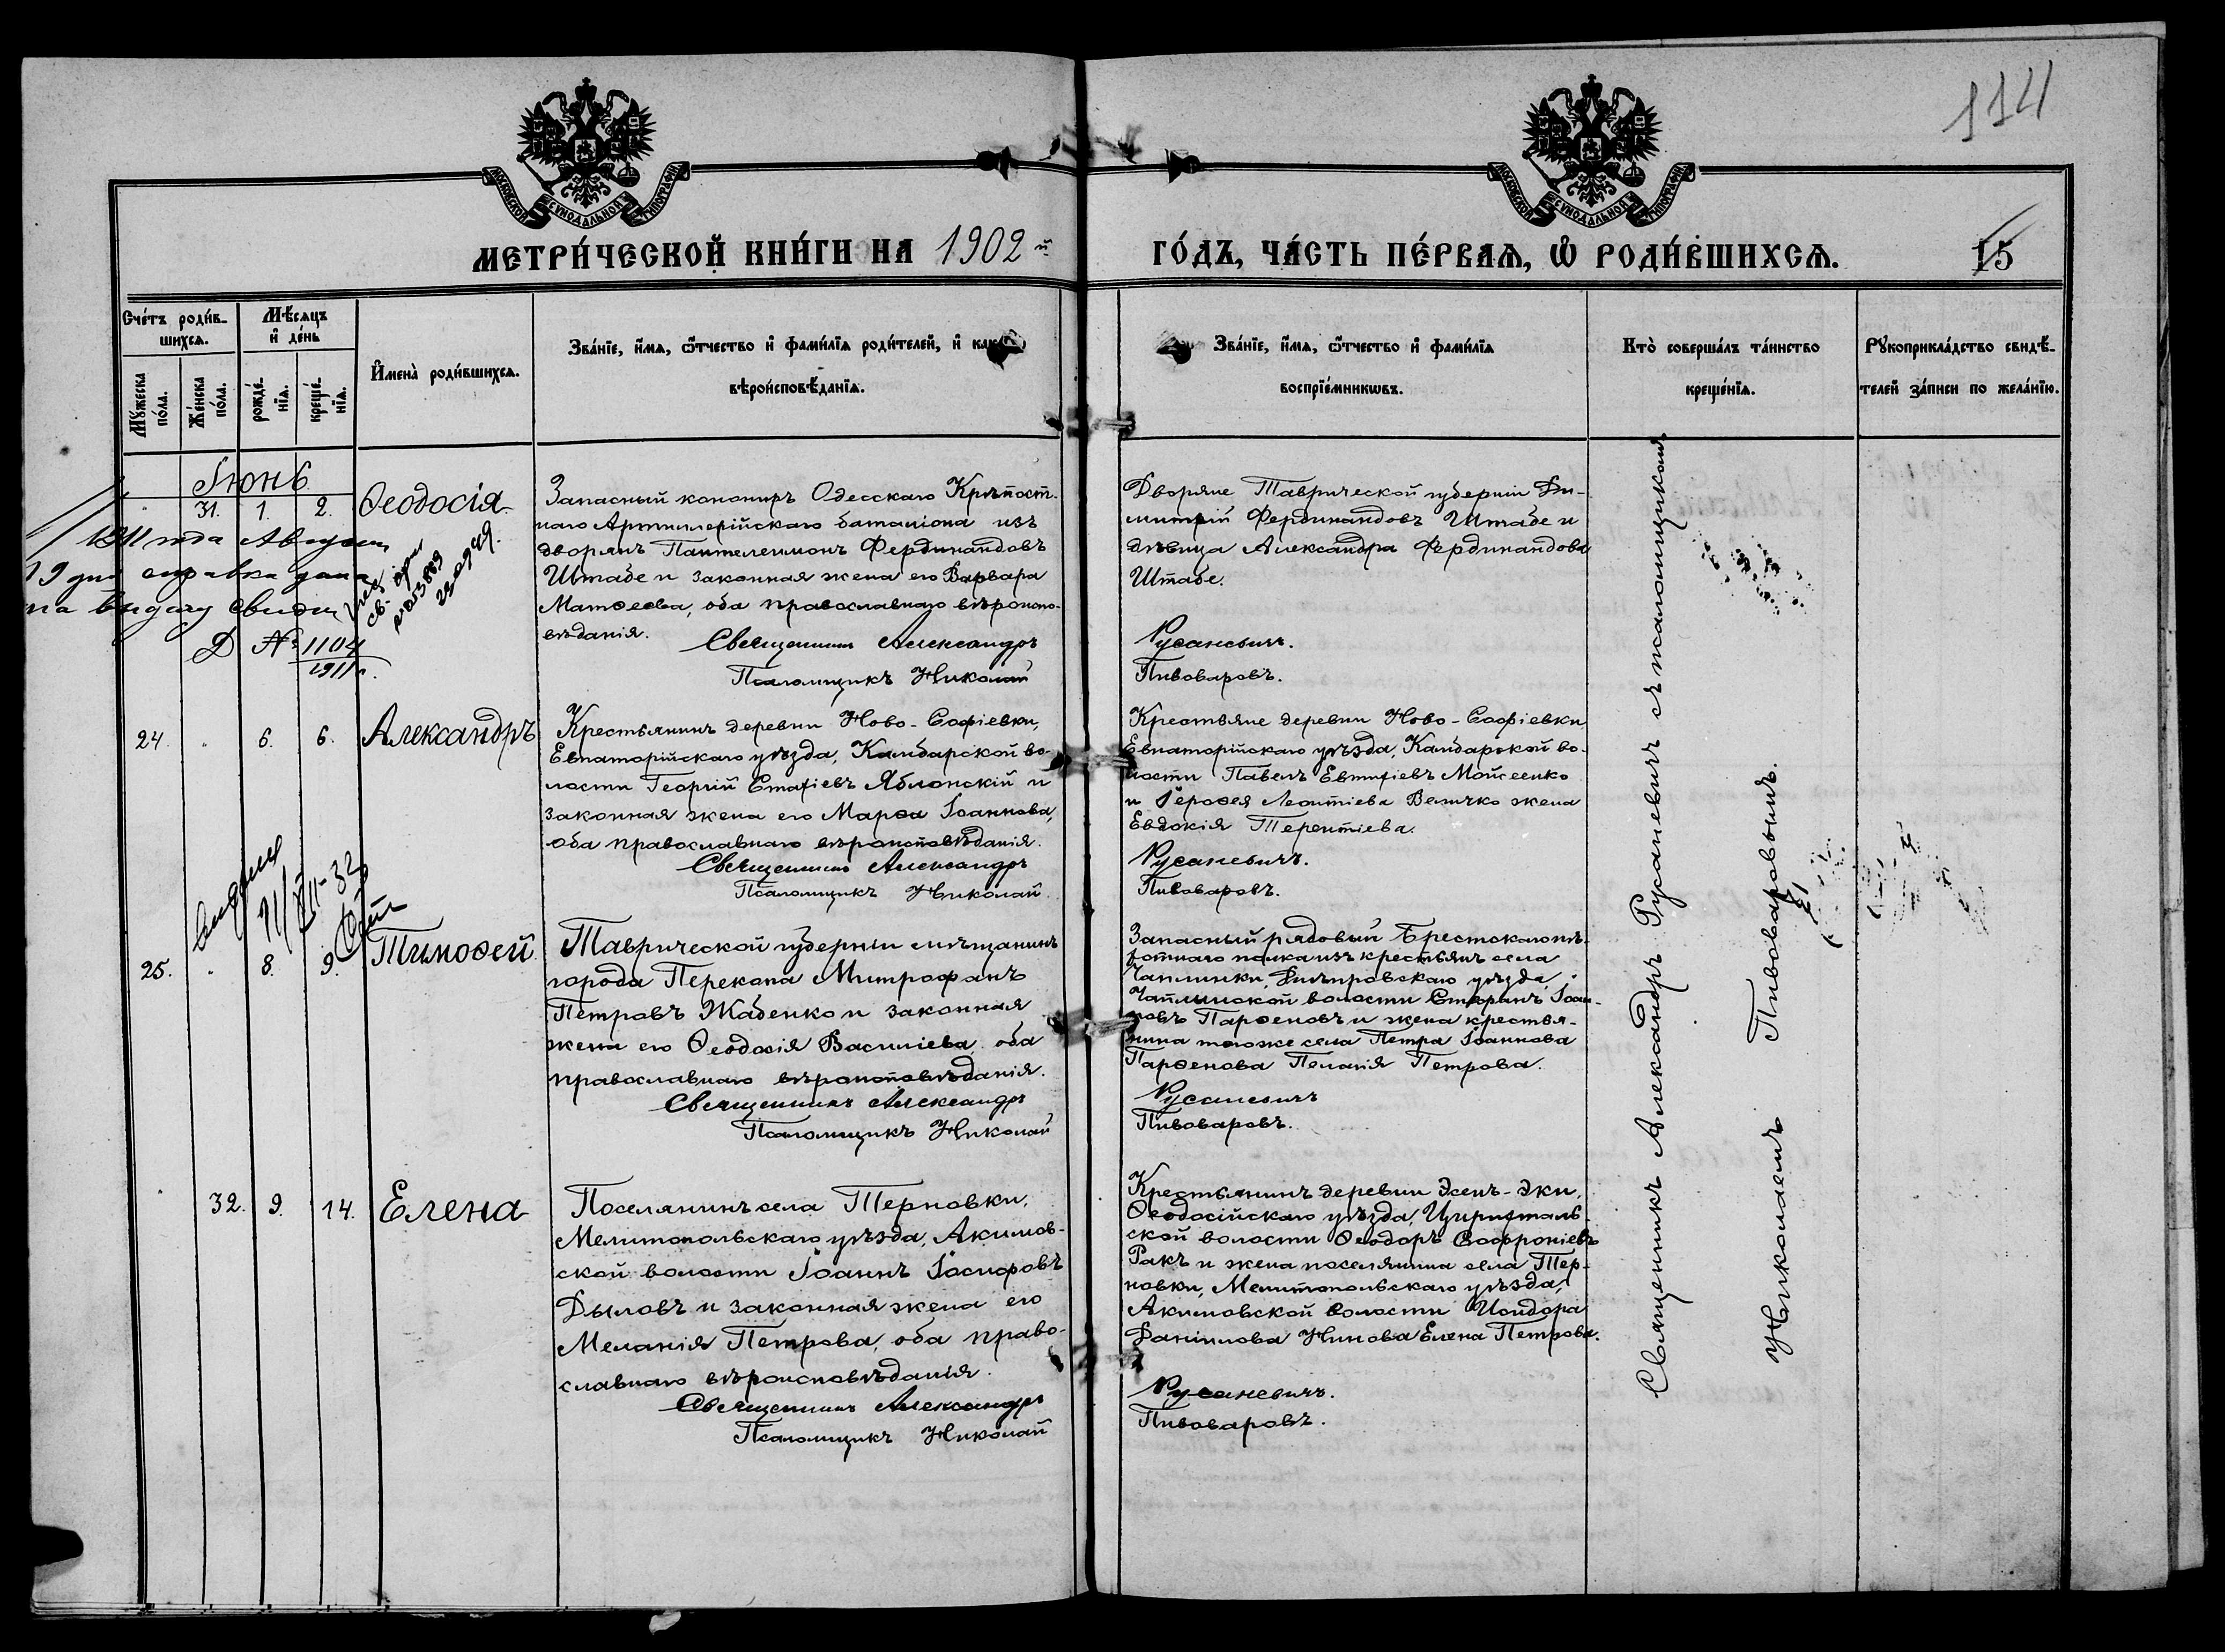 114
МОСКОВСКОЙ СѴНОДАЛЬНОЙ ТИПОГРАФІИ
МОСКОВСКОЙ СѴНОДАЛЬНОЙ ТИПОГРАФІИ
МЕТРИ́ЧЕСКОЙ КНИ́ГИ НА 1902 й
ГО́ДЪ, ЧА́СТЬ ПЕ́РВАѦ, Ѡ РОДИ́ВШИХСѦ.
15
Сче́тъ роди́в-
шихсѧ.
Мѣ́сѧцъ
и҆ де́нь
Мꙋ́жеска
по́ла.
Же́нска
по́ла.
рожде́-
нїѧ.
креще́-
нїѧ.
И҆мена̀ роди́вшихсѧ.
Зва́нїе, и҆́мѧ, ѻ҆́тчество и҆ фами́лїѧ роди́телей, и҆
вѣроисповѣ́данїѧ.
Зва́нїе, и҆́мѧ, ѻ҆́тчество и҆ фами́лїѧ
воспрїе́мникѡвъ.
Кто̀ соверша́лъ та́инство
креще́нїѧ.
Рꙋкоприкла́дство свидѣ́-
телей за́писи по жела́нїю.
Іюнь
31. 1. 2. Ѳеодосія
Запасный канониръ Одесскаго Крѣпост-
наго Артиллерійскаго баталіона изъ
дворянъ Пантелеимонъ Фердинандовъ
Штабе и законная жена его Варвара
Матѳеева, оба православнаго вѣроиспо-
вѣданія.
Священникъ Александръ
Псаломщикъ Николай
Дворяне Таврической губерніи Ди-
митрій Фердинандовъ Штабе и
дѣвица Александра Фердинандова
Штабе.
Русаневичъ.
Пивоваровъ.
1911 года Августа
19 дня справка дана
на выдачу свидѣт
Д № 1104
1911 г.
24. " 6. 6. Александръ
Крестьянинъ деревни Ново-Софіевки,
Евпаторійскаго уѣзда, Камбарской во-
лости Георгій Евтихіевъ Яблонскій и
законная жена его Марѳа Іоаннова,
оба православнаго вѣроисповѣданія.
Священникъ Александръ
Псаломщикъ Николай
Крестьяне деревни Ново-Софіевки,
Евпаторійскаго уѣзда, Камбарской во-
лости Павелъ Евтихіевъ Мойсеенко
и Іероѳея Леонтіева Величко жена
Евдокія Терентіева.
Русаневичъ.
Пивоваровъ.
25. " 8. 9. Тимоѳей
Таврической губерніи мѣщанинъ
города Перекопа Митрофанъ
Петровъ Жабенко и законная
жена его Ѳеодосія Василіева, оба
православнаго вѣроисповѣданія.
Священникъ Александръ
Псаломщикъ Николай
Запасный рядовый Брестскаго пѣ-
хотнаго полка изъ крестьянъ села
Чаплинки, Днѣпровскаго уѣзда,
Чаплинской волости Стефанъ Іоан-
новъ Парѳеновъ и жена крестья-
нина того же села Петра Іоаннова
Парѳенова Пелагія Петрова.
Русаневичъ
Пивоваровъ.
32. 9. 14. Елена
Поселянинъ села Терновки,
Мелитопольскаго уѣзда, Акимов-
ской волости Іоаннъ Іосифовъ
Дыловъ и законная жена его
Меланія Петрова, оба право-
славнаго вѣроисповѣданія.
Священникъ Александръ
Псаломщикъ Николай
Крестьянинъ деревни Эсенъ-Эки,
Ѳеодосійскаго уѣзда, Цюрихталь-
ской волости Ѳеодоръ Софроніевъ
Ракъ и жена поселянина села Тер-
новки, Мелитопольскаго уѣзда,
Акимовской волости Исидора
Даніилова Нинова Елена Петрова.
Русаневичъ.
Пивоваровъ.
Священникъ Александръ Русаневичъ съ псаломщикомъ
Николаемъ Пивоваровымъ.